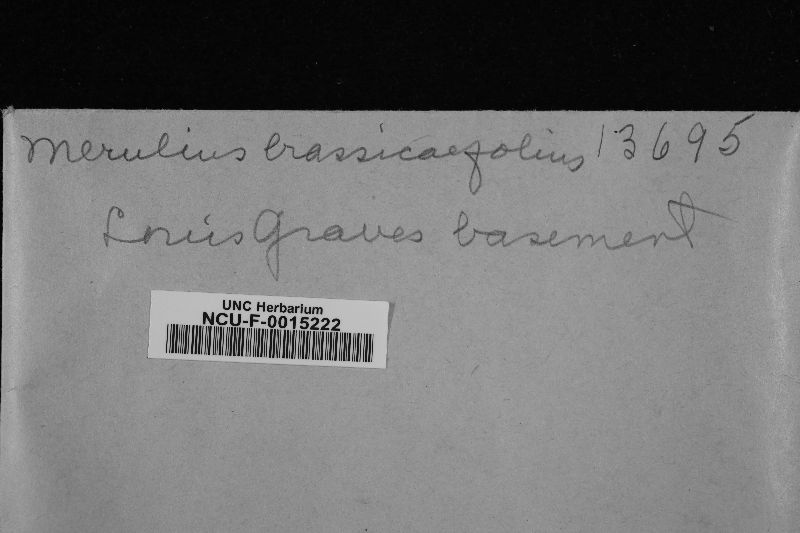 Merulius brassicaefolius 13695
Louis Graves basement
UNC Herbarium
NCU-F-0015222